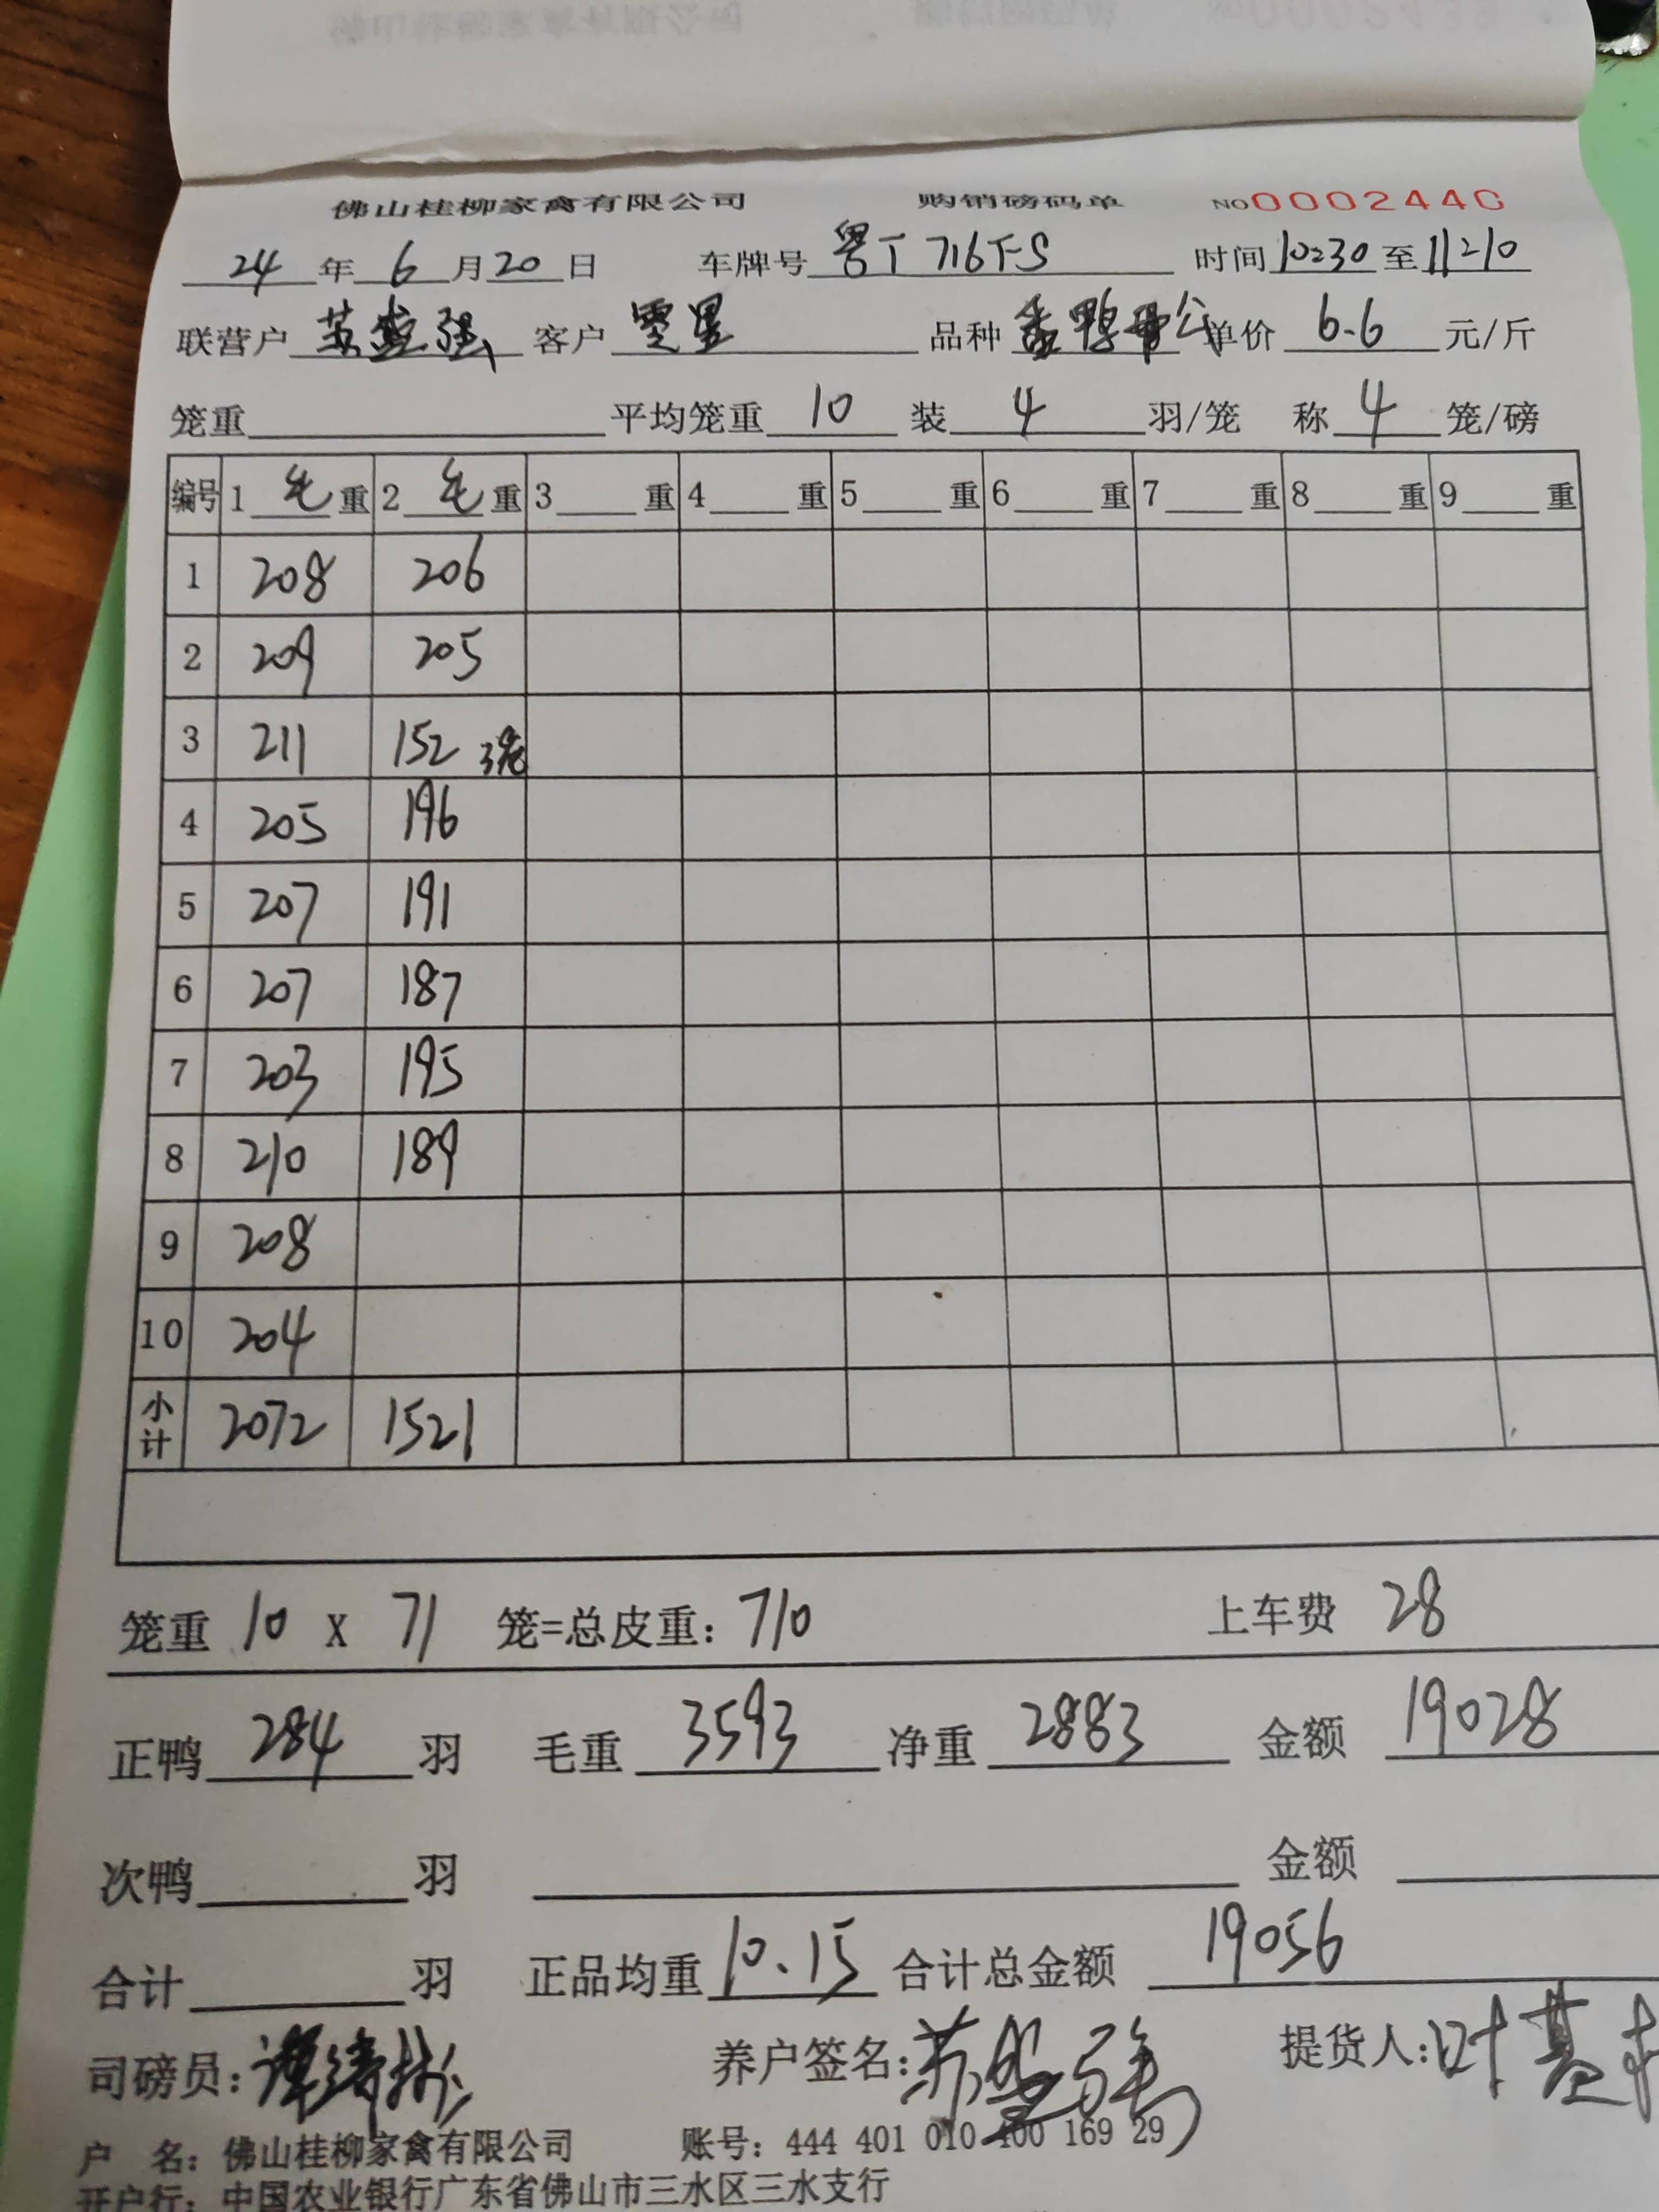 佛山桂柳家禽有限公司 购销磅码单 NO 0002440
24 年 6 月 20 日 车牌号 粤T 716FS 时间 10:30 至 11:10
联营户 苏盛强 客户 雯星 品种 番鸭公 单价 6.6 元/斤
笼重 平均笼重 10 装 4 羽/笼 称 4 笼/磅
编号 1 毛 重 2 毛 重 3 重 4 重 5 重 6 重 7 重 8 重 9 重
1 208 206
2 209 205
3 211 152 3笼
4 205 196
5 207 191
6 207 187
7 203 195
8 210 189
9 208
10 204
小计 2072 1521
笼重 10 X 71 笼=总皮重: 710 上车费 28
正鸭 284 羽 毛重 3593 净重 2883 金额 19028
次鸭 羽 金额
合计 羽 正品均重 10.15 合计总金额 19056
司磅员: 养户签名: 苏盛强 提货人: 叶
户 名: 佛山桂柳家禽有限公司 账号: 444 401 010 400 169 29
开户行: 中国农业银行广东省佛山市三水区三水支行